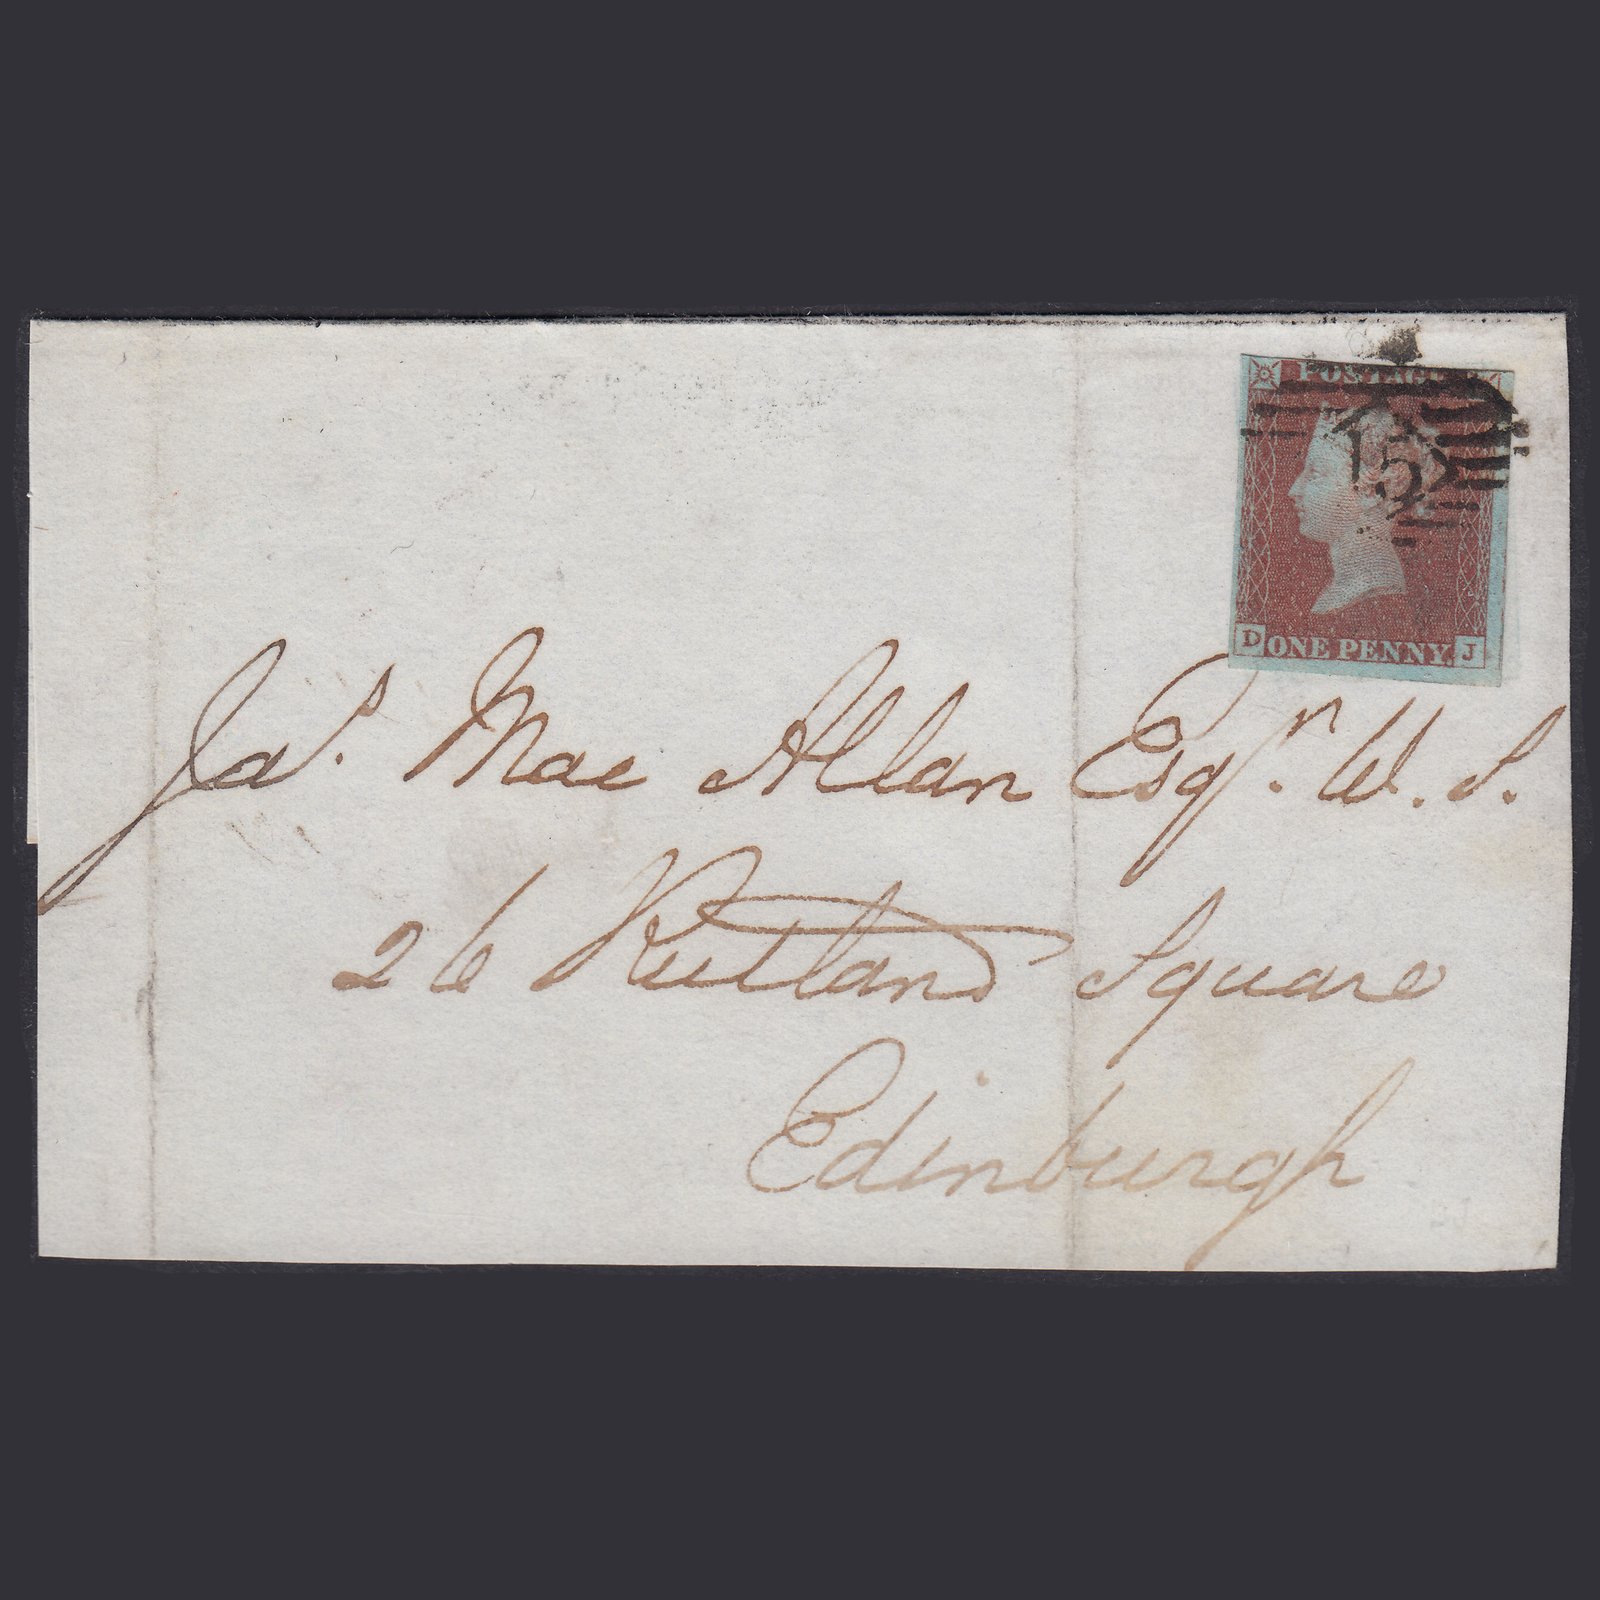 POSTAGE
15
D ONE PENNY. J
Jas. Mac Allan Esqr. W. S.
26 Rutland Square
Edinburgh